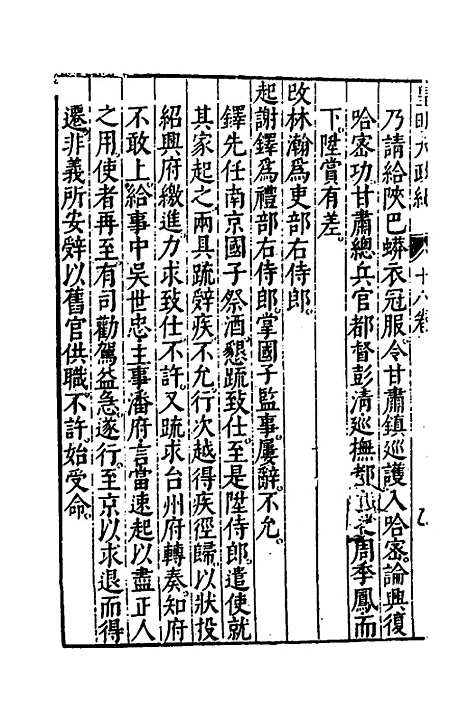 皇明大政紀 十八卷
乃請給陝巴蟒衣冠服。令甘肅鎮巡護入哈密。論興復
哈密功甘肅總兵官都督彭清巡撫都 周季鳳而
下。陞賞有差。
改林瀚爲吏部右侍郎。
起謝鐸爲禮部右侍郎。掌國子監事。屢辭。不允。
鐸先任南京國子祭酒。懇疏致仕。至是陞侍郎。遣使就
其家起之。兩具疏辭疾。不允。行次越得疾徑歸。以狀投
紹興府繳進。力求致仕。不許。又疏求台州府轉奏。知府
不敢上。給事中吳世忠。主事潘府言當速起以盡正人
之用。使者再至。有司勸駕益急。遂行。至京以求退而得
遷。非義所安。辭以舊官供職。不許。始受命。